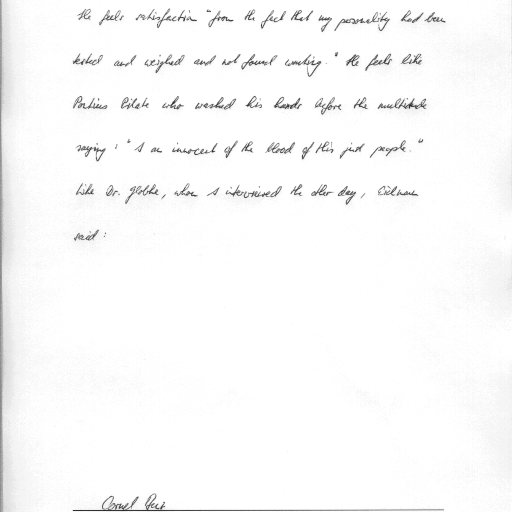 He feels satisfaction "from the fact that my personality had been
tested and weighed and not found wanting." He feels like
Pontius Pilate who washed his hands before the multitude
saying: "I am innocent of the blood of this just people."
Like Dr. Globke, whom I interviewed the other day, Eichmann
said:
Cornel